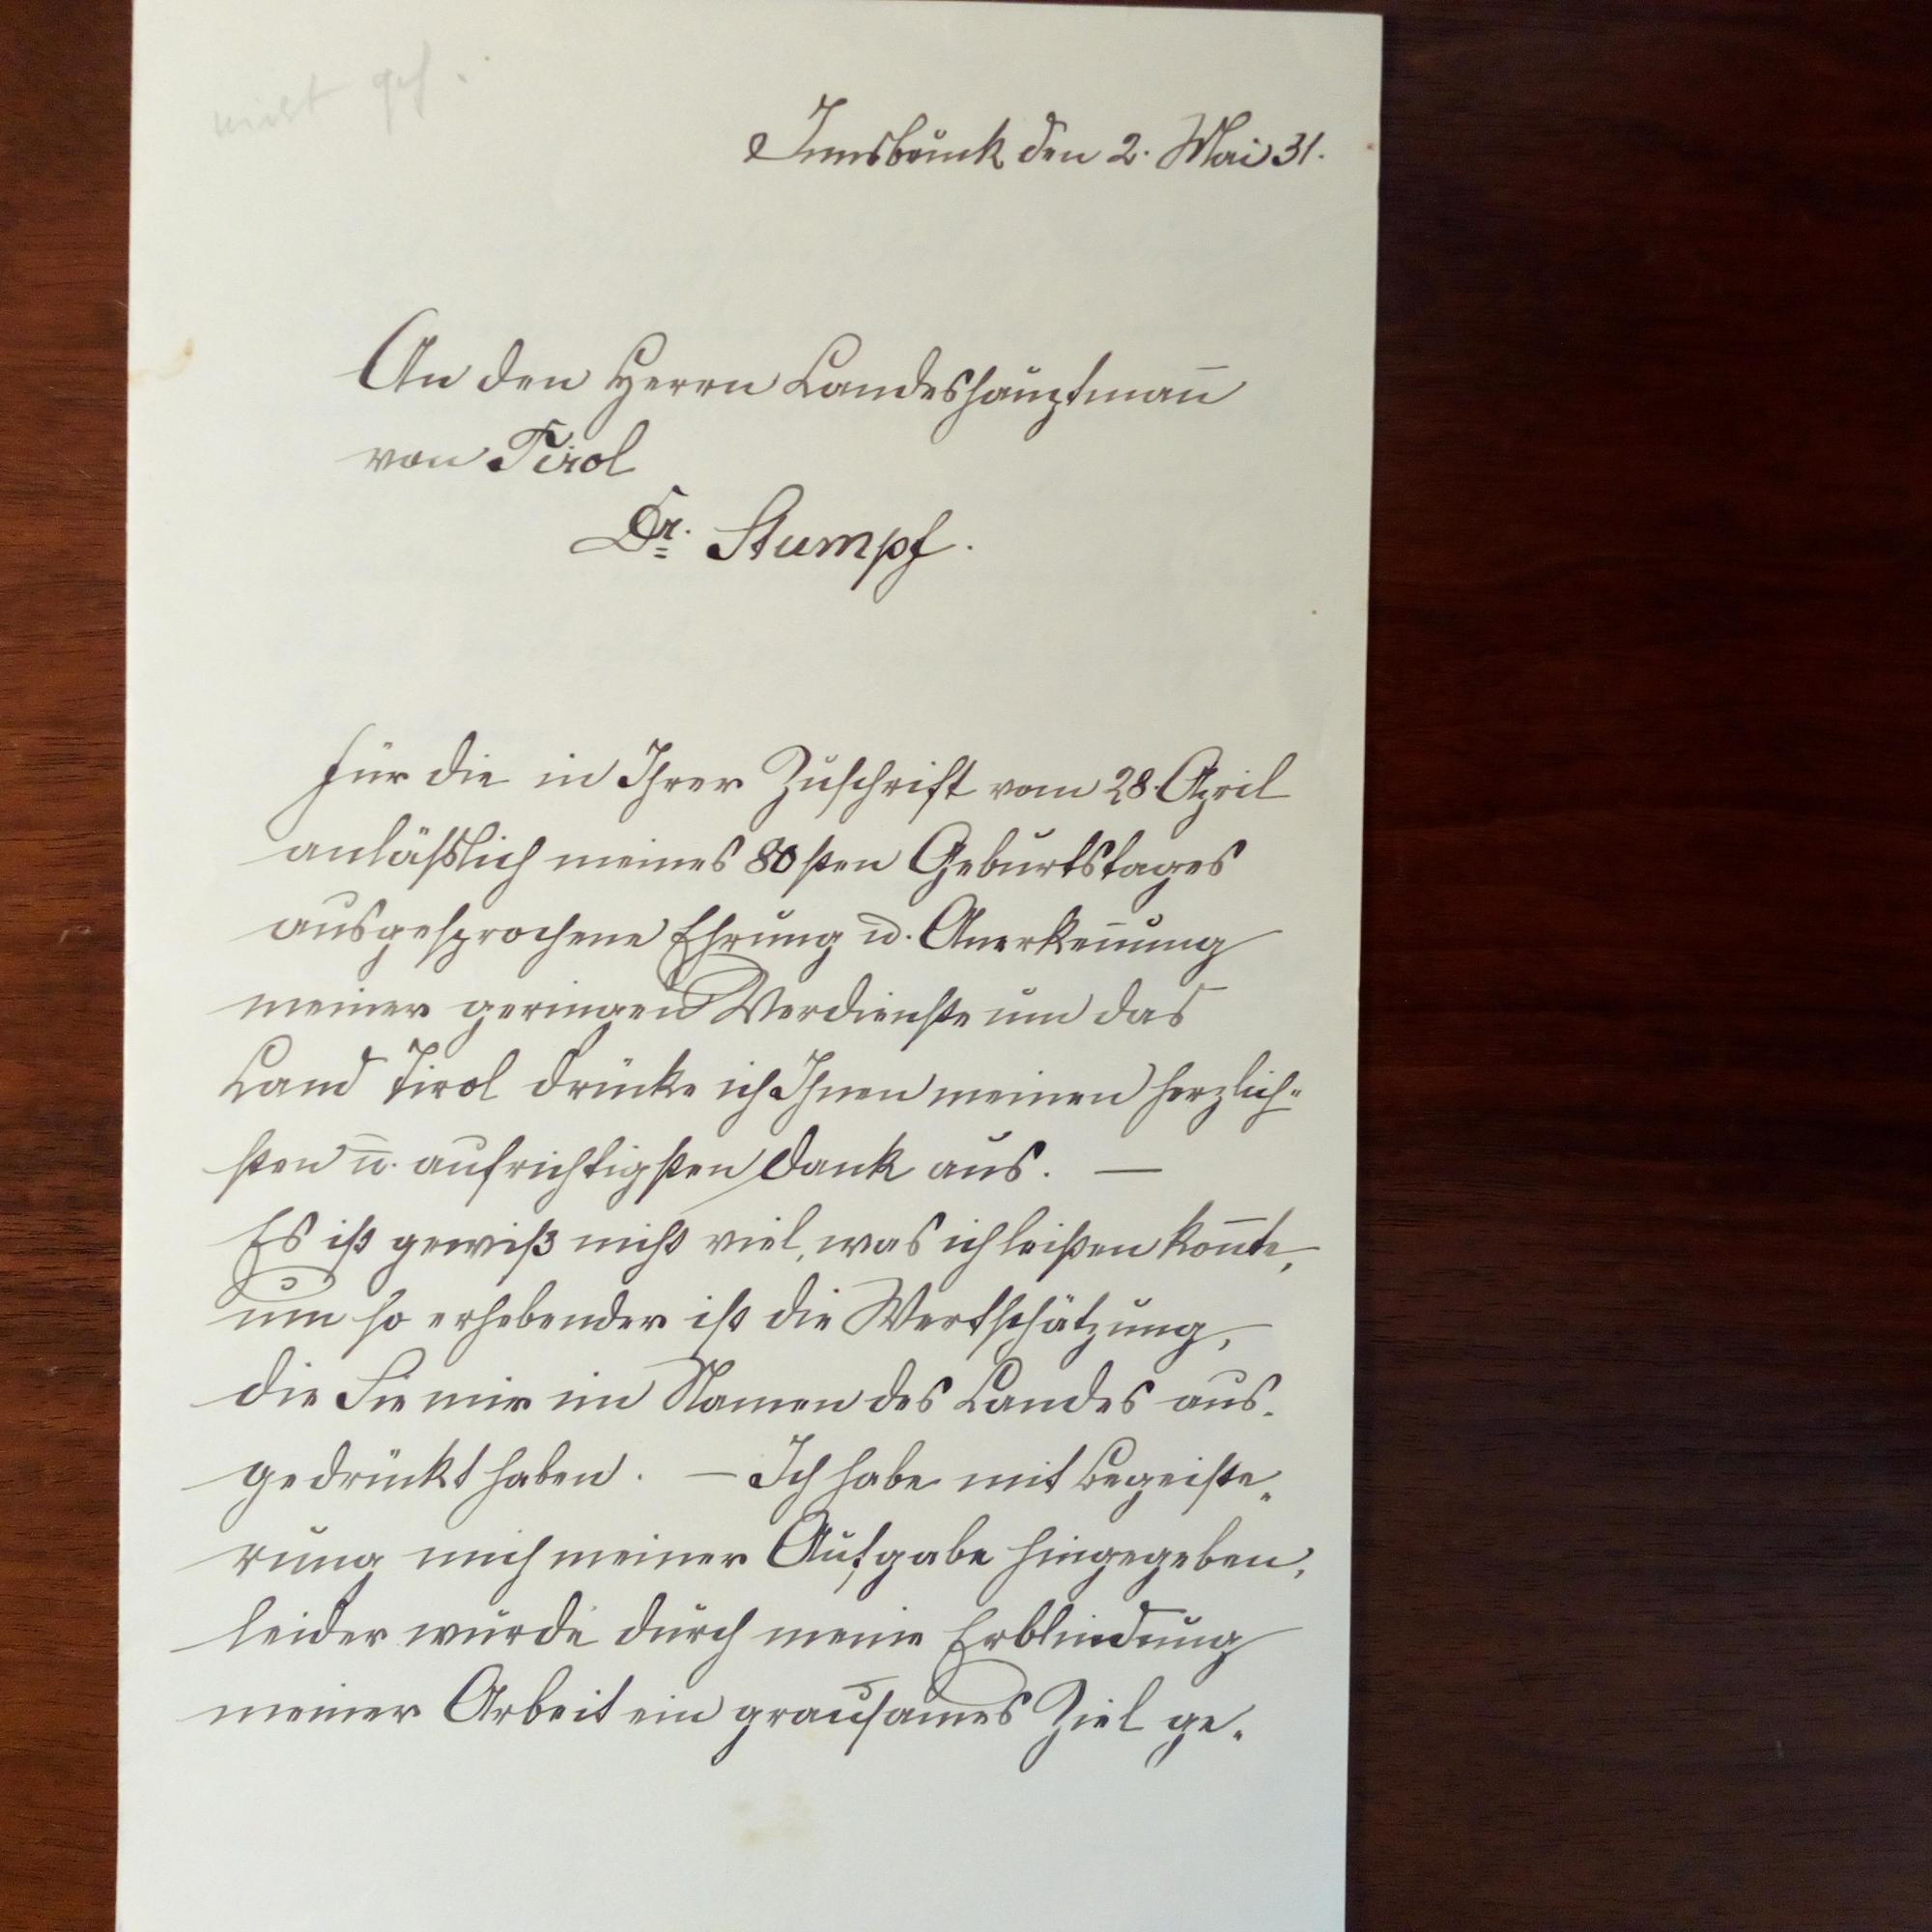 Innsbruck den 2. Mai 31.
An den Herrn Landeshauptman̄
von Tirol
Dr. Stumpf.
Für die in Ihrer Zuschrift vom 28. April
anläßlich meines 80sten Geburtstages
ausgesprochene Ehrung u. Anerken̄ung
meiner geringen Verdienste um das
Land Tirol drücke ich Ihnen meinen herzlich-
sten u. aufrichtigsten Dank aus. —
Es ist gewiß nicht viel, was ich leisten kon̄te,
um so erhebender ist die Wertschätzung,
die Sie mir im Namen des Landes aus-
gedrückt haben. — Ich habe mit Begeiste-
rung mich meiner Aufgabe hingegeben,
leider wurde durch meine Erblindung
meiner Arbeit ein grausames Ziel ge-